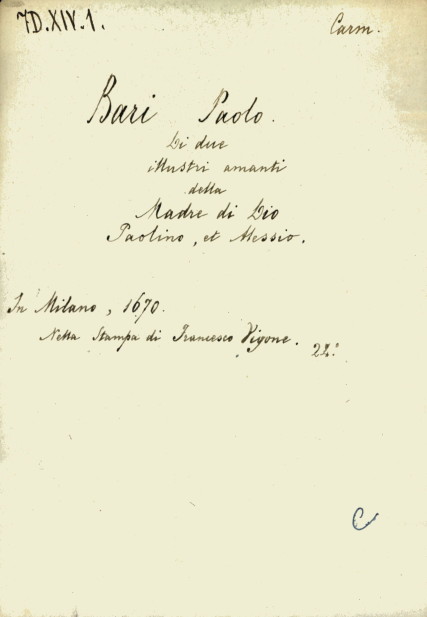 7D.XIV.1.
Carm.
Bari Paolo.
Di due
illustri amanti
della
Madre di Dio
Paolino, et Alessio.
In Milano, 1670.
Nella Stampa di Francesco Vigone.
C